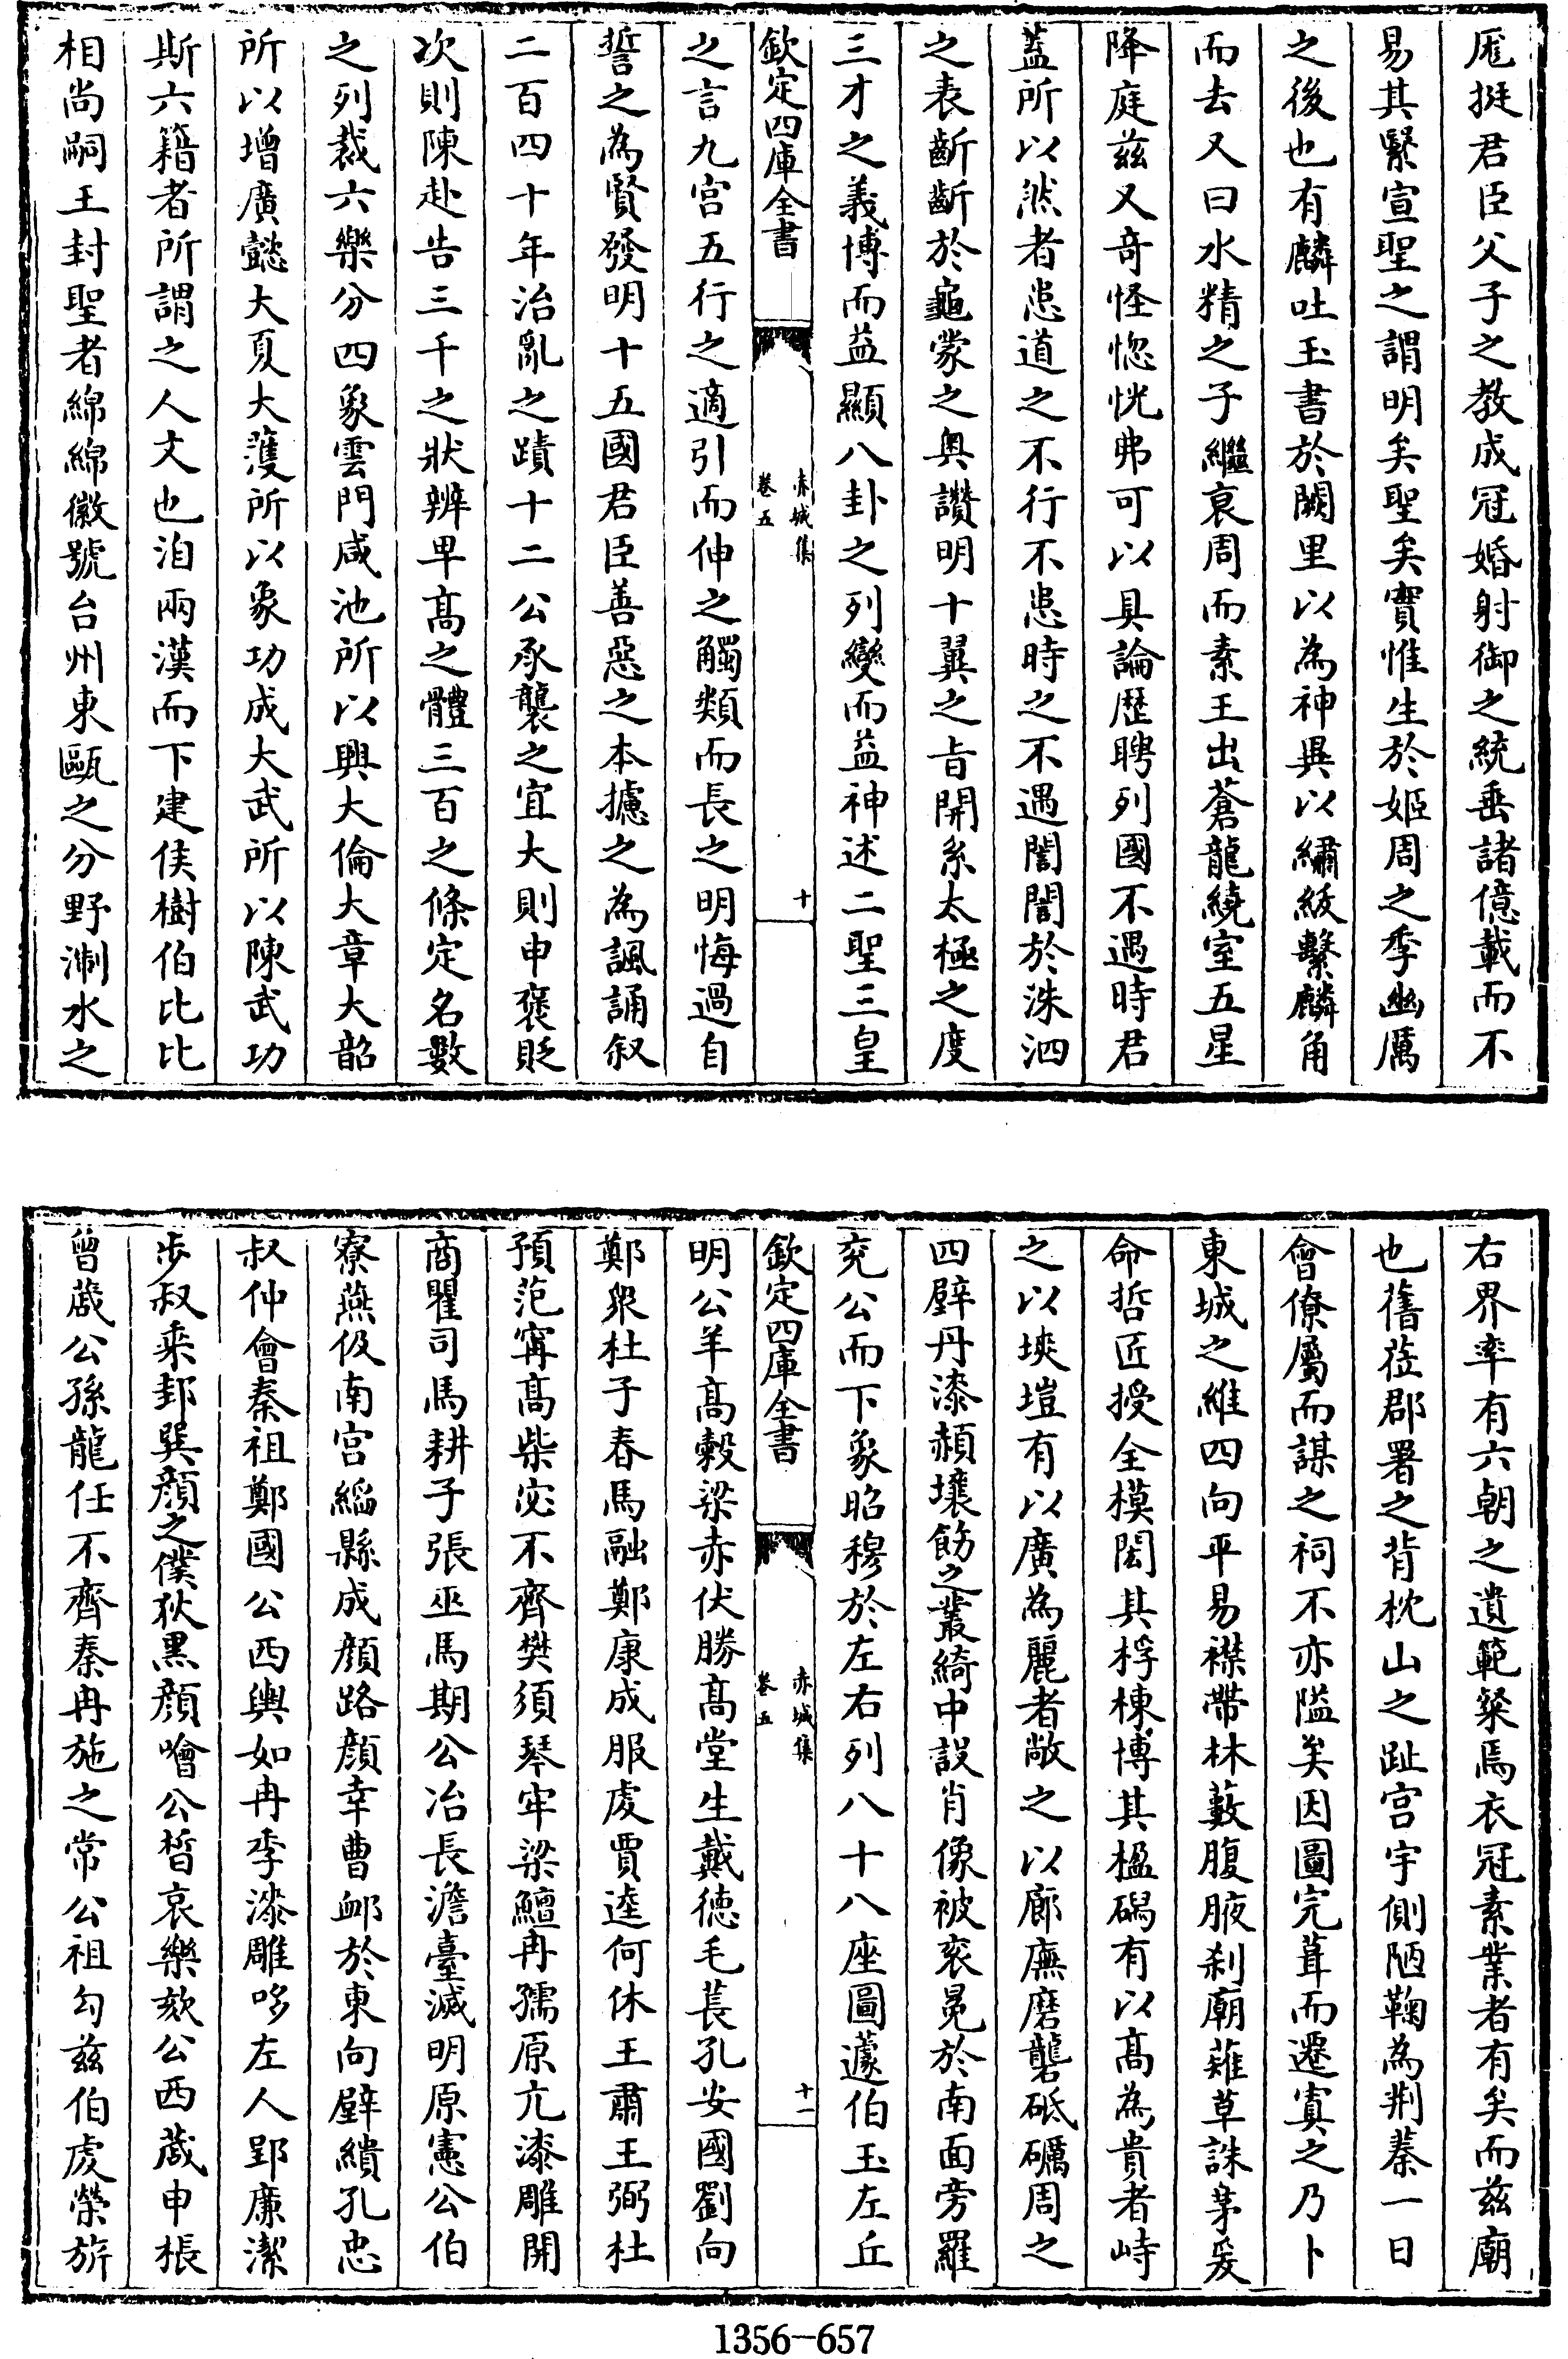 厖挺君臣父子之教成冠婚射御之統垂諸億載而不
易其緊宣聖之謂明矣聖矣實惟生於姬周之季幽厲
之後也有麟吐玉書於闕里以為神異以繡紱繫麟角
而去又曰水精之子繼衰周而素王出蒼龍繞室五星
降庭兹又奇怪惚恍弗可以具論歴聘列國不遇時君
葢所以然者患道之不行不患時之不遇誾誾於洙泗
之表齗齗於龜蒙之奥讚明十翼之旨開糸太極之度
三才之義博而益顯八卦之列變而益神述二聖三皇
欽定四庫全書
赤城集
卷五
十
之言九宫五行之適引而伸之觸類而長之明悔過自
誓之為賢發明十五國君臣善惡之本攄之為諷誦叙
二百四十年治亂之蹟十二公承襲之宜大則申褒貶
次則陳赴告三千之狀辨卑髙之體三百之條定名數
之列裁六樂分四象雲門咸池所以興大倫大章大韶
所以增廣懿大夏大濩所以象功成大武所以陳武功
斯六籍者所謂之人文也洎兩漢而下建侯樹伯比比
相尚嗣王封聖者綿綿徽號台州東甌之分野淛水之
右界率有六朝之遺範粲焉衣冠素業者有矣而兹廟
也舊莅郡署之背枕山之趾宫宇側陋鞠為荆蓁一日
會僚屬而謀之祠不亦隘矣因圖完葺而遷寘之乃卜
東城之維四向平易襟帶林藪腹腋刹廟薙草誅茅爰
命哲匠授全模閎其桴棟博其楹碣有以髙為貴者峙
之以堗塏有以廣為麗者敞之以廊廡磨礱砥礪周之
四壁丹漆赬壤飾之叢綺中設肖像被衮冕於南面旁羅
兖公而下象昭穆於左右列八十八座圖蘧伯玉左丘
欽定四庫全書
赤城集
卷五
十一
明公羊髙穀梁赤伏勝髙堂生戴徳毛萇孔安國劉向
鄭衆杜子春馬融鄭康成服虔賈逵何休王肅王弼杜
預范甯髙柴宓不齊樊須琴牢梁鱣冉孺原亢漆雕開
商瞿司馬耕子張巫馬期公冶長澹臺滅明原憲公伯
寮燕伋南宫縚縣成顔路顔幸曹卹於東向壁繢孔忠
叔仲會秦祖鄭國公西輿如冉季漆雕哆左人郢亷潔
步叔乘邽巽顔之僕狄黒顔噲公晳哀樂欬公西蒧申棖
曾蒧公孫龍任不齊秦冉施之常公祖勾兹伯虔榮旂
1356-657